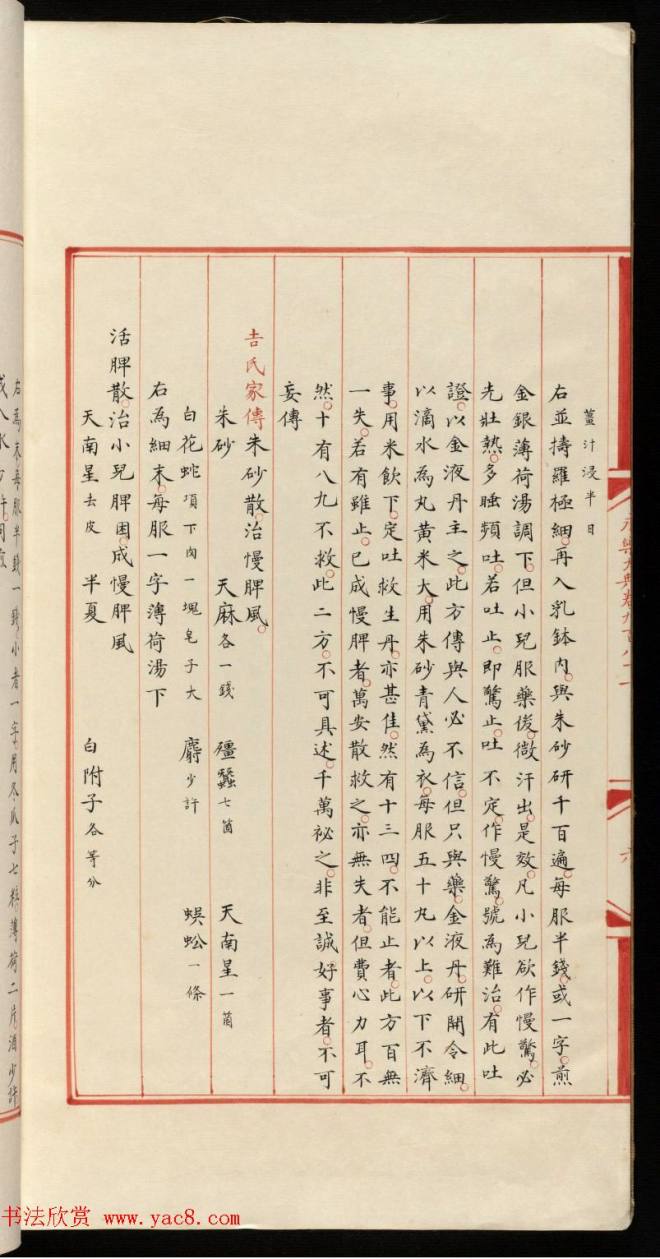 薑汁浸半日
右並擣羅極細。再入乳鉢內。與朱砂研千百遍。每服半錢。或一字。煎
金銀薄荷湯調下。但小兒服藥後。微汗出。是效。凡小兒欲作慢驚。必
先壯熱。多睡頻吐。若吐止。即驚止。吐不定。作慢驚。號為難治。有此吐
證。以金液丹主之。此方傳與人必不信。但只與藥。金液丹。研開令細。
以滴水為丸黃米大。用朱砂青黛為衣。每服五十丸以上。以下不濟
事。用米飲下。定吐救生丹。亦甚佳。然有十三四。不能止者。此方百無
一失。若有雖止。已成慢脾者。萬安散救之。亦無失者。但費心力耳。不
然。十有八九不救。此二方。不可具述。千萬祕之。非至誠好事者。不可
妄傳
吉氏家傳朱砂散。治慢脾風。
朱砂 天麻各一錢 殭蠶七箇 天南星一箇
白花蛇項下肉一塊皂子大 麝少許 蜈蚣一條
右為細末。每服一字薄荷湯下
活脾散。治小兒脾困。成慢脾風
天南星去皮 半夏 白附子各等分
右為末。每服半錢一錢。小者一字。用冬瓜子七粒薄荷二片。酒少許
或入水少許。同煎
永樂大典卷九百八十一
六
书法欣赏 www.yac8.com